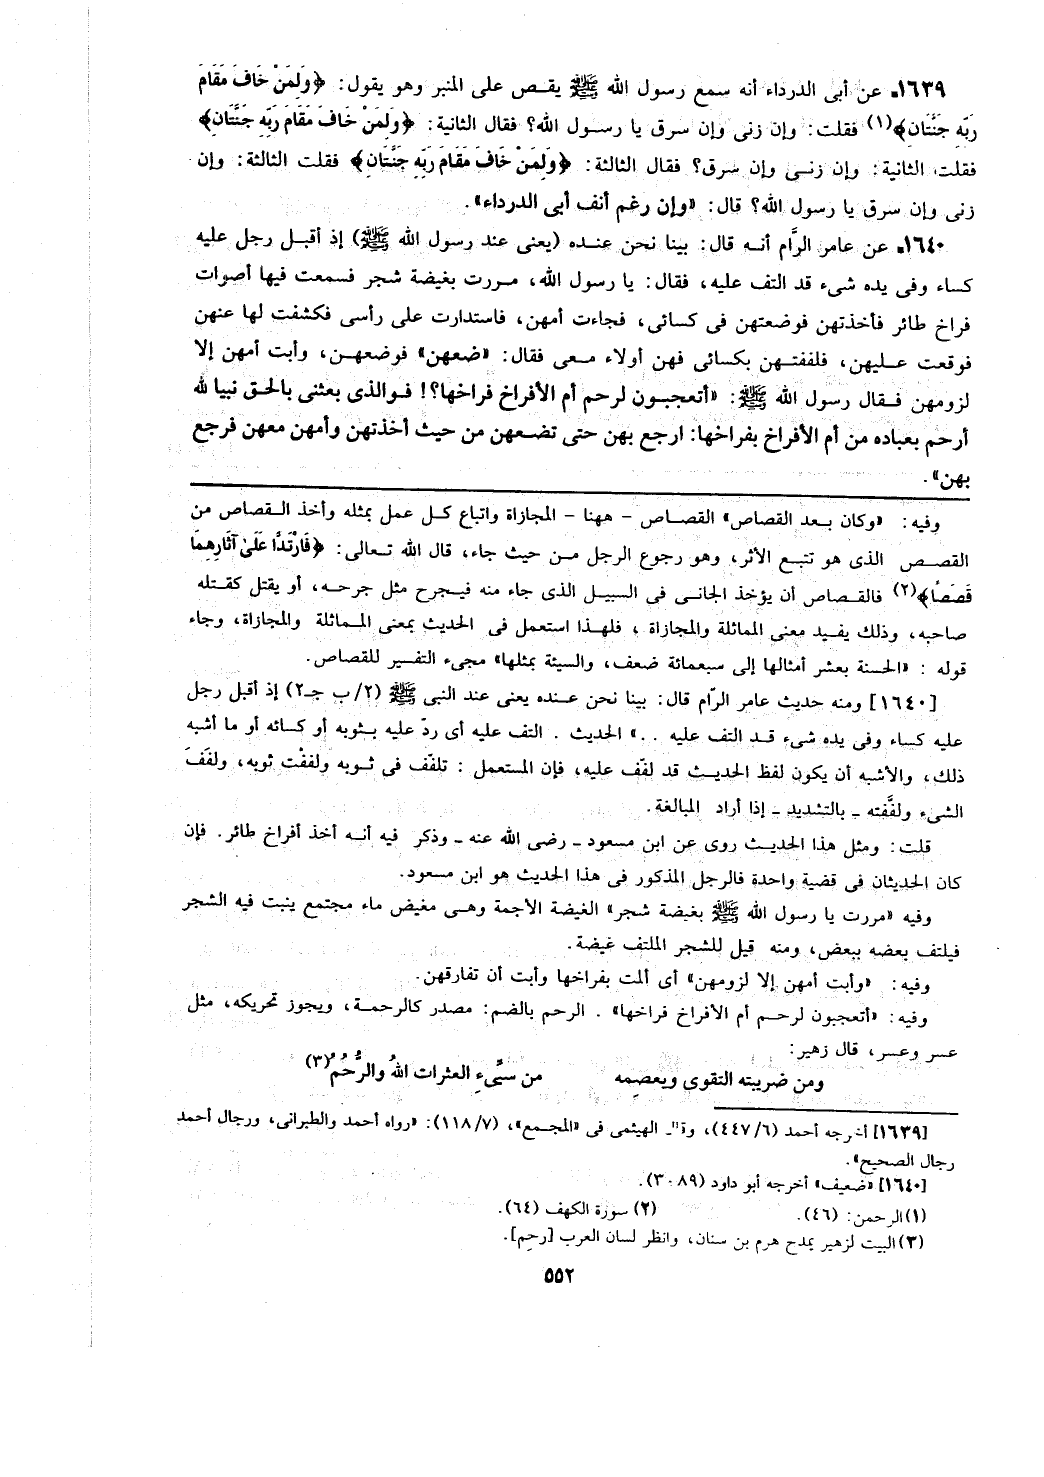 ١٦٣٩ـ عن أبى الدرداء أنه سمع رسول الله ﷺ يقـص على المنبر وهو يقول: ﴿وَلَمِنْ خَافَ مَقَامَ
رَبِّهِ جَنَّتَانِ﴾(١) فقلت: وإن زنى وإن سرق يا رسـول الله؟ فقال الثانية: ﴿وَلَمِنْ خَافَ مَقَامَ رَبِّهِ جَنَّتَانِ﴾
فقلت الثانية: وإن زنـى وإن سرق؟ فقال الثالثة: ﴿وَلَمِنْ خَافَ مَقَامَ رَبِّهِ جَنَّتَانِ﴾ فقلت الثالثة: وإن
زنى وإن سرق يا رسول الله؟ قال: «وإن رغم أنف أبى الدرداء».
١٦٤٠ـ عن عامر الرَّام أنـه قال: بينا نحن عنـده (يعنى عند رسول الله ﷺ) إذ أقبـل رجل عليه
كساء وفى يده شىء قد التف عليه، فقال: يا رسول الله، مـررت بغيضة شجر فسمعت فيها أصوات
فراخ طائر فأخذتهن فوضعتهن فى كسائى، فجاءت أمهن، فاستدارت على رأسى فكشفت لها عنهن
فوقعت عـليهن، فلففتـهن بكسائى فهن أولاء مـعى فقال: «ضعهن» فوضعهـن، وأبت أمهن إلا
لزومهن فـقال رسول الله ﷺ: «أتعجبـون لرحم أم الأفراخ فراخها؟! فـوالذى بعثنى بالحق نبيا لله
أرحم بعباده من أم الأفراخ بفراخها: ارجع بهن حتى تضـعهن من حيث أخذتهن وأمهن معهن فرجع
بهن».
وفيه: «وكان بـعد القصاص» القصـاص - ههنا - المجازاة واتباع كـل عمل بمثله وأخذ الـقصاص من
القصـص الذى هو تتبع الأثر، وهو رجوع الرجل مـن حيث جاء، قال الله تـعالى: ﴿فَارْتَدَّا عَلَىٰ آثَارِهِمَا
قَصَصًا﴾(٢) فالقـصاص أن يؤخذ الجانـى فى السبيـل الذى جاء منه فيـجرح مثل جرحـه، أو يقتل كقـتله
صاحبه، وذلك يفـيد معنى المماثلة والمجازاة ، فلهـذا استعمل فى الحديث بمعنى المـماثلة والمجازاة، وجاء
قوله : «الحسنة بعشر أمثالها إلى سبعمائة ضعف، والسيئة بمثلها» مجىء التفسير للقصاص.
[١٦٤٠] ومنه حديث عامر الرّام قال: بينا نحن عـنده يعنى عند النبى ﷺ (٢/ب جـ٢) إذ أقبل رجل
عليه كساء وفى يده شىء قـد التف عليه . .» الحديث . التف عليه أى ردّ عليه بـثوبه أو كسائه أو ما أشبه
ذلك، والأشبه أن يكون لفظ الحديـث قد لفّف عليه، فإن المستعمل : تلفّف فى ثـوبه ولففْت ثوبه، ولفَفَ
الشىء ولفَّفته ـ بالتشديد ـ إذا أراد المبالغة.
قلت: ومثل هذا الحديـث روى عن ابن مسعود ـ رضى الله عنه ـ وذكر فيه أنـه أخذ أفراخ طائر. فإن
كان الحديثان فى قضية واحدة فالرجل المذكور فى هذا الحديث هو ابن مسعود.
وفيه «مررت يا رسول الله ﷺ بغيضة شجر» الغيضة الأجمة وهـى مغيض ماء مجتمع ينبت فيه الشجر
فيلتف بعضه ببعض، ومنه قيل للشجر الملتف غيضة.
وفيه: «وأبت أمهن إلا لزومهن» أى ألمت بفراخها وأبت أن تفارقهن.
وفيه: «أتعجبون لرحـم أم الأفراخ فراخها» . الرحم بالضم: مصدر كالرحمـة، ويجوز تحريكه، مثل
عسر وعسر، قال زهير:
ومن ضريبته التقوى ويعصِمه من سيَّىءِ العثرات اللهُ والرُّحُمُ(٣)
[١٦٣٩] أخرجه أحمد (٤٤٧/٦)، وقال الهيثمى فى «المجـمع»، (١١٨/٧): «رواه أحمد والطبرانى، ورجال أحمد
رجال الصحيح».
[١٦٤٠] «ضعيف» أخرجه أبو داود (٣٠٨٩).
(١) الرحمن: (٤٦). (٢) سورة الكهف (٦٤).
(٣) البيت لزهير يمدح هرم بن سنان، وانظر لسان العرب [رحم].
٥٥٢